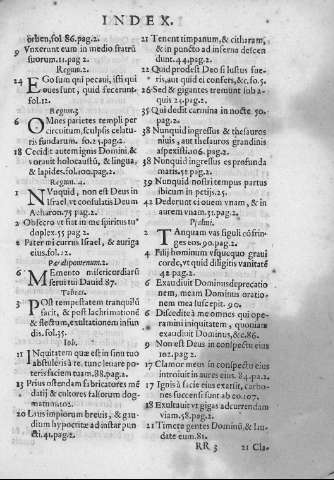 INDEX.
orbē, fol 86. pag. 2.
9 Vnxerunt eum in medio fratrū
suorum. 11. pag 2.
Regum. 2.
24 EGo sum qui pecaui, isti qui
oues sunt, quid fecerunt.
fol. 12.
Regum. 3
6 OMnes parietes templi per
circuitum, sculpsit celatu-
ris fundarum. fo. 25. pag. 2.
18 Cecidit autem ignis Domini, &
vorauit holocaustū, & lingua,
& lapides. fol. 100. pag. 2.
Regum. 4.
1 NVnquid, non est Deus in
Israel, vt consulatis Deum
Acharon. 75 pag. 2.
2 Obsecro vt fiat in me spiritus tu°
duplex. 55 pag 2
2 Pater mi currus Israel, & auriga
eius. fol. 12.
Paralipomenon. 2.
6 MEmento misericordiarū
serui tui Dauid 87.
Tobiæ.
3 POst tempestatem tranquilū
facit, & post lachrimationē
& fletum, exultationem infun
dis. fol. 35.
Iob.
11 INquitatem quæ est in sinu tuo
abstuleris à te. tunc leuare po-
teris faciem tuam. 88. pag. 2.
13 Prius ostendam fabricatores mē
datij & cultores falsorum dog-
matum. 102.
20 Laus impiorum breuis, & gau-
dium hypocritæ ad instar pun
cti. 41. pag. 2.
21 Tenent timpanum, & citharam,
& in puncto ad inferna descen
dunt. 44. pag 2.
22 Quid prodest Deo si iustus fue-
ris, aut quid ei confers, &c. fo. 5.
26 Sed & gigantes tremunt sub a-
quis 24. pag 2.
35 Qui dedit carmina in nocte 50.
pag. 2.
38 Nunquid ingressus & thesauros
niuis, aut thesauros grandinis
aspexisti. 106. pag 2.
38 Nunquid ingressus es profunda
maris. 55 pag. 2.
39 Nunquid nosti tempus partus
ibicum in petijs. 25.
42 Dederunt ei ouem vnam, & in
aurem vnam. 55. pag 2.
Psalmi.
2 TAnquam vas figuli cōfrin-
ges eos. 90. pag. 2.
4 Filij hominum vsquequo graui
corde, vt quid diligitis vanitatē
42 pag. 2
6 Exaudiuit Dominus deprecatio
nem, meam Dominus oratio-
nem mea suscepit 90.
6 Discedite à me omnes qui ope-
ramini iniquitatem, quoniam
exaudiuit Dominus, &c. 86.
9 Non est Deus in conspectu eius
102. pag 2.
17 Clamor meus in conspectu eius
introiuit in aures eius. 84. pag 2.
17 Ignis à facie eius exarsit, carbo-
nes succensi sunt ab eo. 107.
18 Exultauit vt gigas ad currendam
viam. 58. pag. 2.
21 Timete gentes Dominū, & lau-
date eum. 81.
RR 3 21 Cla-